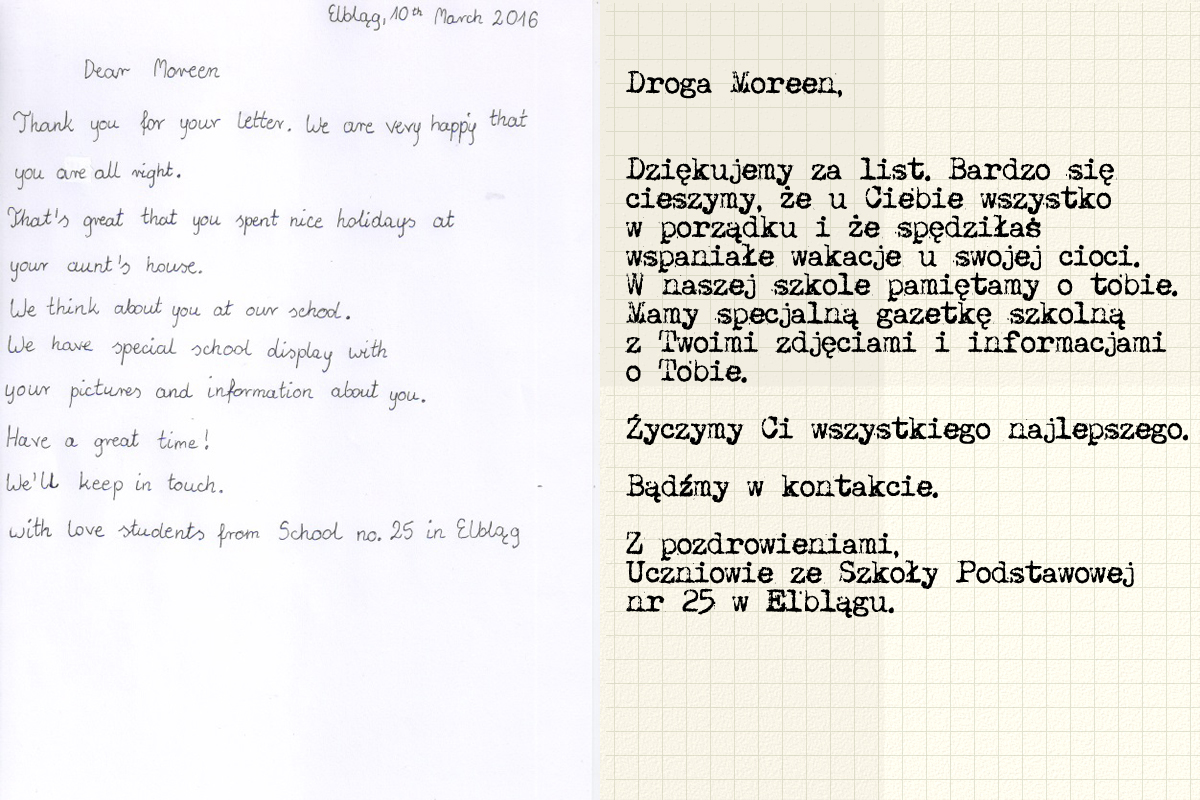 Elbląg, 10th March 2016
Dear Moreen
Thank you for your letter. We are very happy that
you are all right.
That's great that you spent nice holidays at
your aunt's house.
We think about you at our school.
We have special school display with
your pictures and information about you.
Have a great time!
We'll keep in touch.
with love students from School no. 25 in Elbląg
Droga Moreen,
Dziękujemy za list. Bardzo się
cieszymy, że u Ciebie wszystko
w porządku i że spędziłaś
wspaniałe wakacje u swojej cioci.
W naszej szkole pamiętamy o tobie.
Mamy specjalną gazetkę szkolną
z Twoimi zdjęciami i informacjami
o Tobie.
Życzymy Ci wszystkiego najlepszego.
Bądźmy w kontakcie.
Z pozdrowieniami,
Uczniowie ze Szkoły Podstawowej
nr 25 w Elblągu.